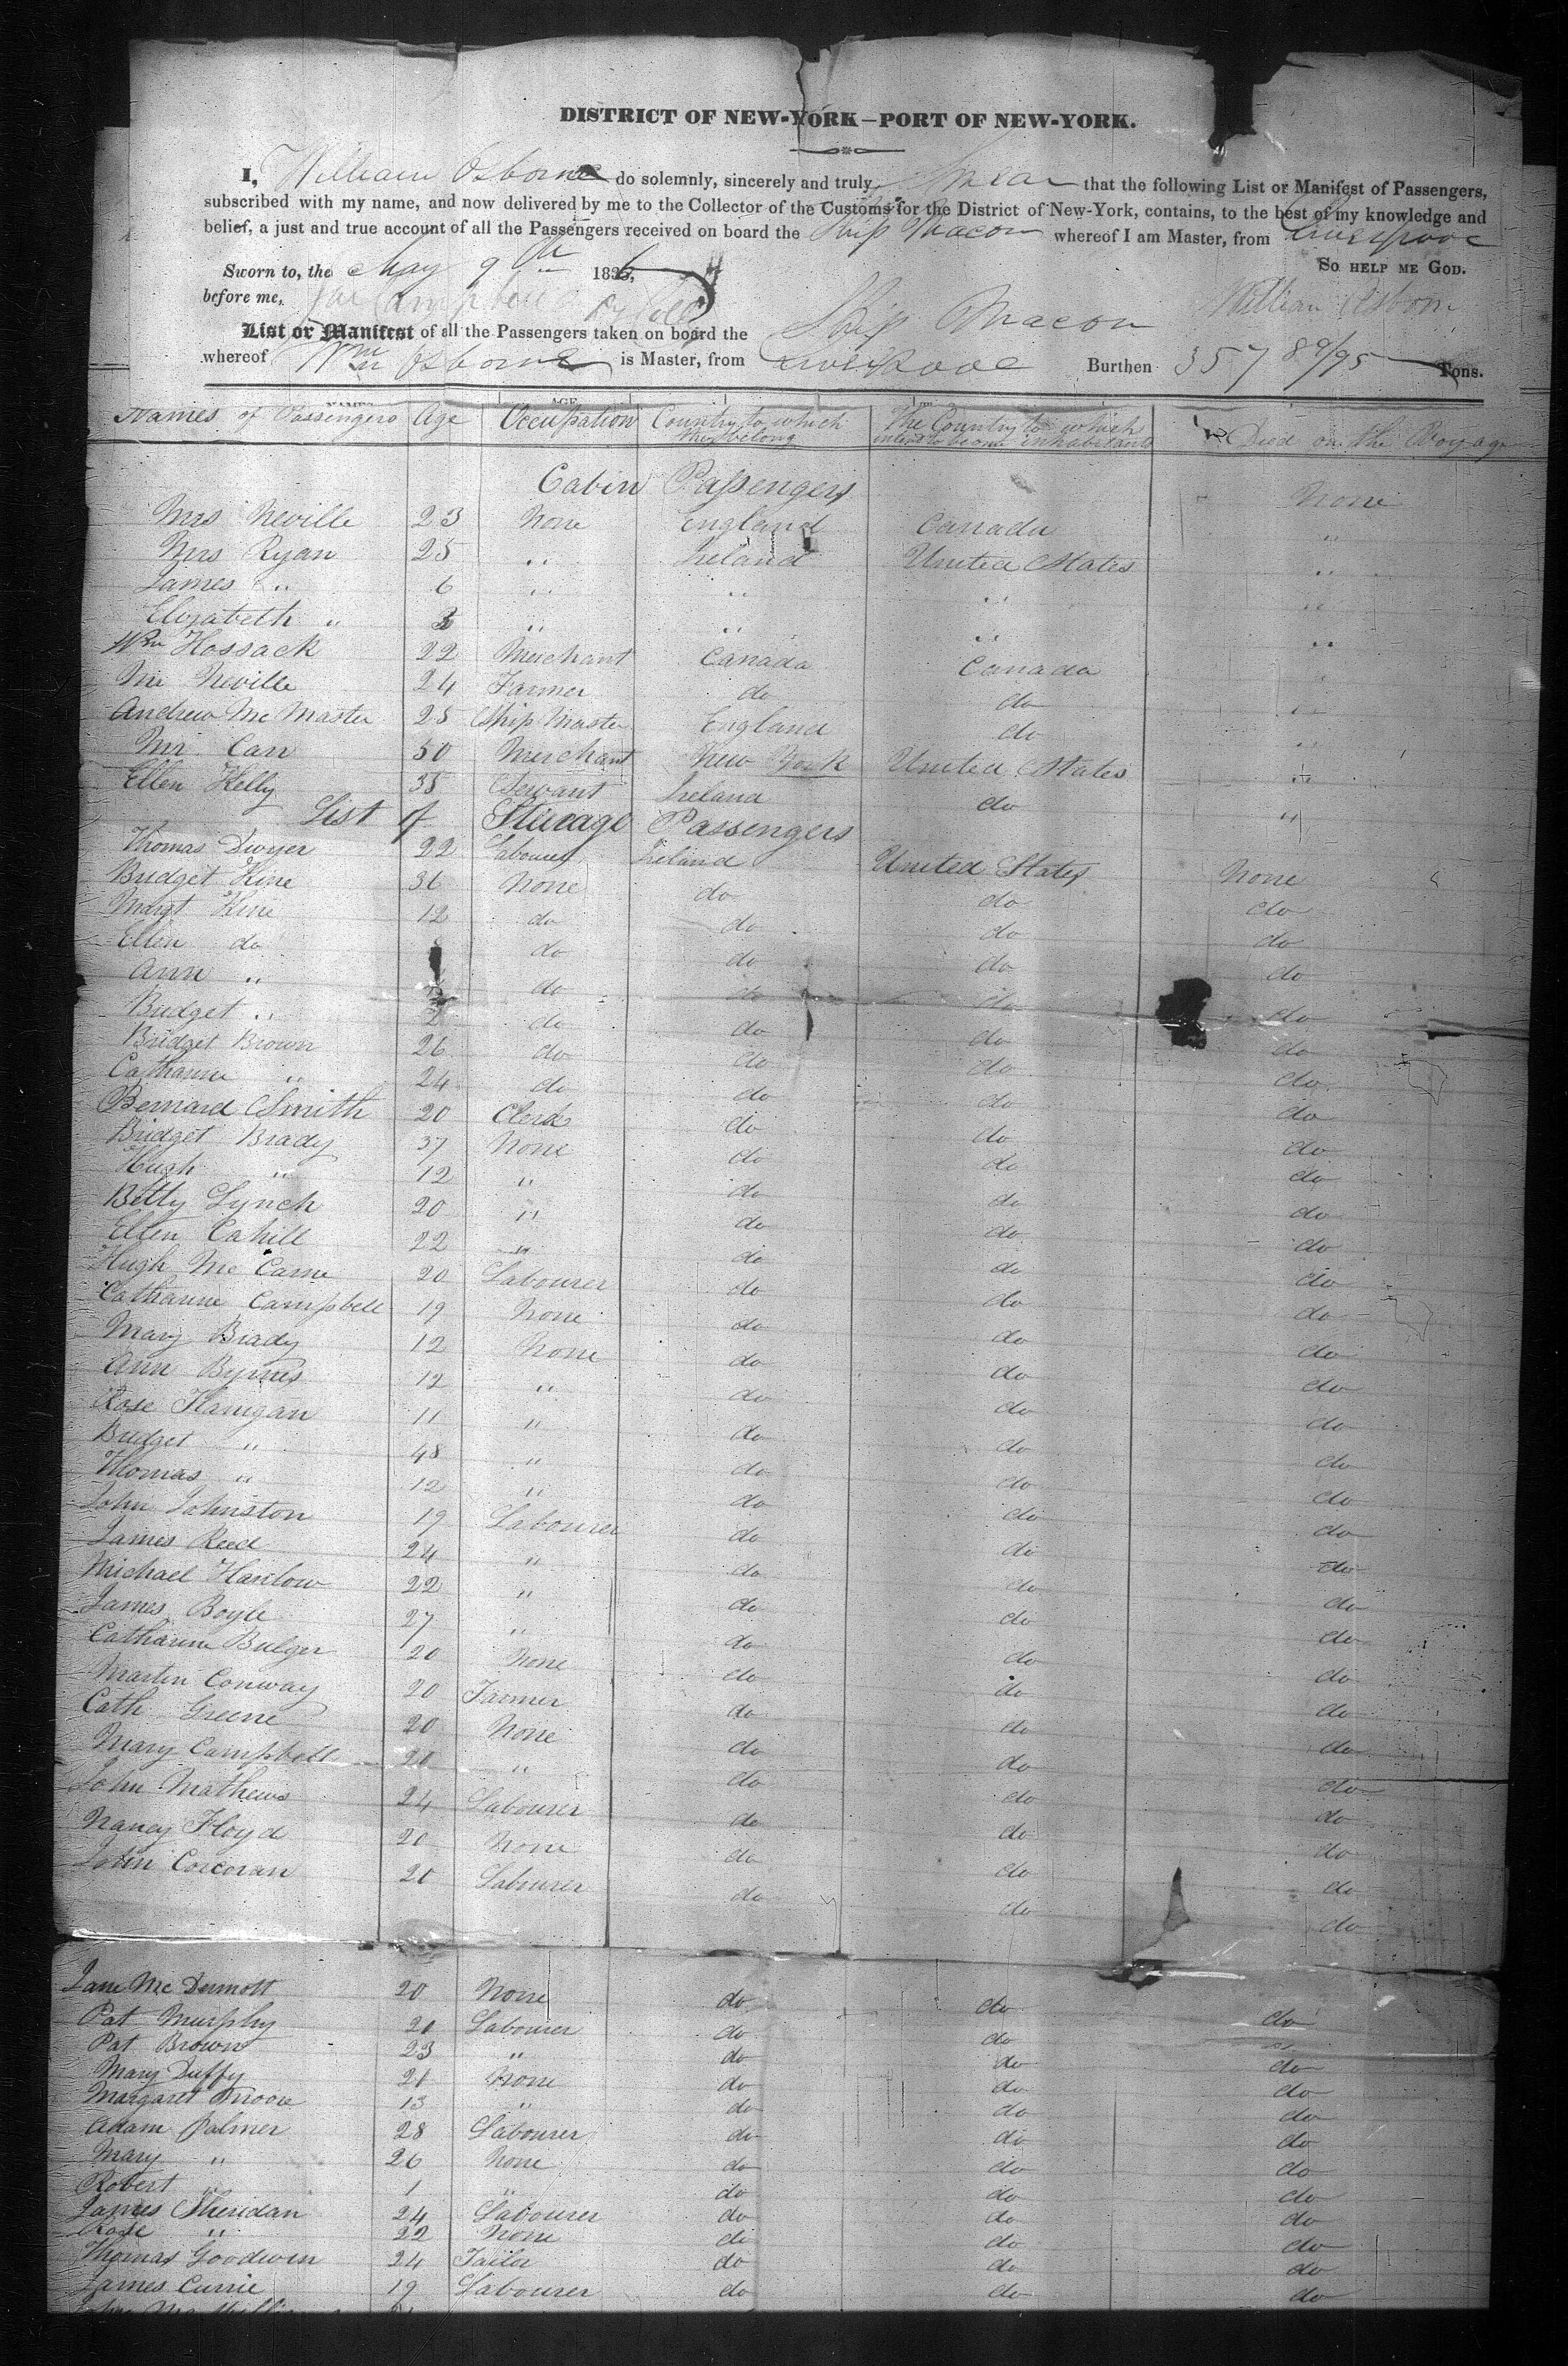 DISTRICT OF NEW-YORK—PORT OF NEW-YORK.
I, William Osborne do solemnly, sincerely and truly Swear that the following List or Manifest of Passengers,
subscribed with my name, and now delivered by me to the Collector of the Customs for the District of New-York, contains, to the best of my knowledge and
belief, a just and true account of all the Passengers received on board the Ship Macon whereof I am Master, from Liverpool
Sworn to, the May 9th 1836, SO HELP ME GOD.
before me, Campbell William Osborn
List or Manifest of all the Passengers taken on board the Ship Macon
whereof Wm Osborne is Master, from Liverpool Burthen 357 89/95 Tons.
Names of Passengers Age Occupation Country to which they belong The Country to which intend to become inhabitants Died on the Voyage
Cabin Passengers
Mrs Neville 23 None England Canada None
Mrs Ryan 25 " Ireland United States "
James " 6 " " " "
Elizabeth " 3 " " " "
Wm Hossack 22 Merchant Canada Canada "
Mr Neville 24 Farmer do do "
Andrew McMaster 25 Ship Master England do "
Mr Carr 50 Merchant New York United States "
Ellen Kelly 35 Servant Ireland do "
List of Steerage Passengers
Thomas Dwyer 22 Labourer Ireland United States None
Bridget Kine 36 None do do do
Margt Kine 12 do do do do
Ellen do do do do do
Ann " do do do do
Bridget " 2 do do do do
Bridget Brown 26 do do do do
Catharine " 24 do do do do
Bernard Smith 20 Clerk do do do
Bridget Brady 37 None do do do
Hugh " 12 " do do do
Betty Lynch 20 " do do do
Ellen Cahill 22 " do do do
Hugh McCanne 20 Labourer do do do
Catharine Campbell 19 None do do do
Mary Brady 12 None do do do
Ann Byrnes 12 " do do do
Rose Flanigan 11 " do do do
Bridget " 48 " do do do
Thomas " 12 " do do do
John Johnston 19 Labourer do do do
James Reed 24 " do do do
Michael Hanlow 22 " do do do
James Boyle 27 " do do do
Catharine Bulger 20 None do do do
Martin Conway 20 Farmer do do do
Cath Greene 20 None do do do
Mary Campbell 20 " do do do
John Mathews 24 Labourer do do do
Nancy Floyd 20 None do do do
John Corcoran 20 Labourer do do do
Jane McDermott 20 None do do do
Pat Murphy 21 Labourer do do do
Pat Brown 23 " do do do
Mary Duffy 21 None do do do
Margaret Moore 13 " do do do
Adam Palmer 28 Labourer do do do
Mary " 26 None do do do
Robert " 1 " do do do
James Sheridan 24 Labourer do do do
Rose " 22 None do do do
Thomas Goodwin 24 Tailor do do do
James Currie 19 Labourer do do do